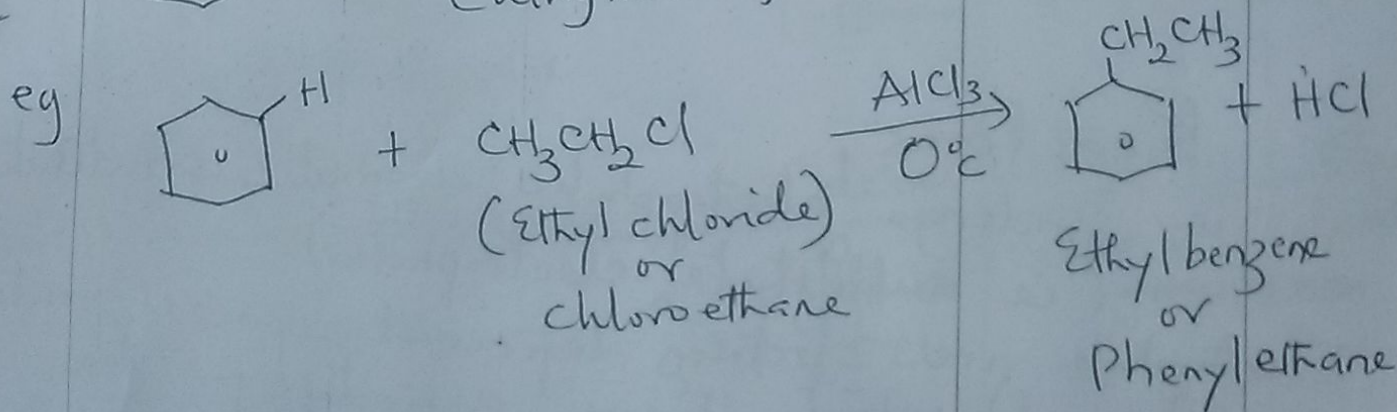 eg
H + CH₃CH₂Cl AlCl₃ CH₂CH₃ + HCl
0°c
(Ethyl chloride)
or
chloroethane
Ethylbenzene
or
Phenylethane